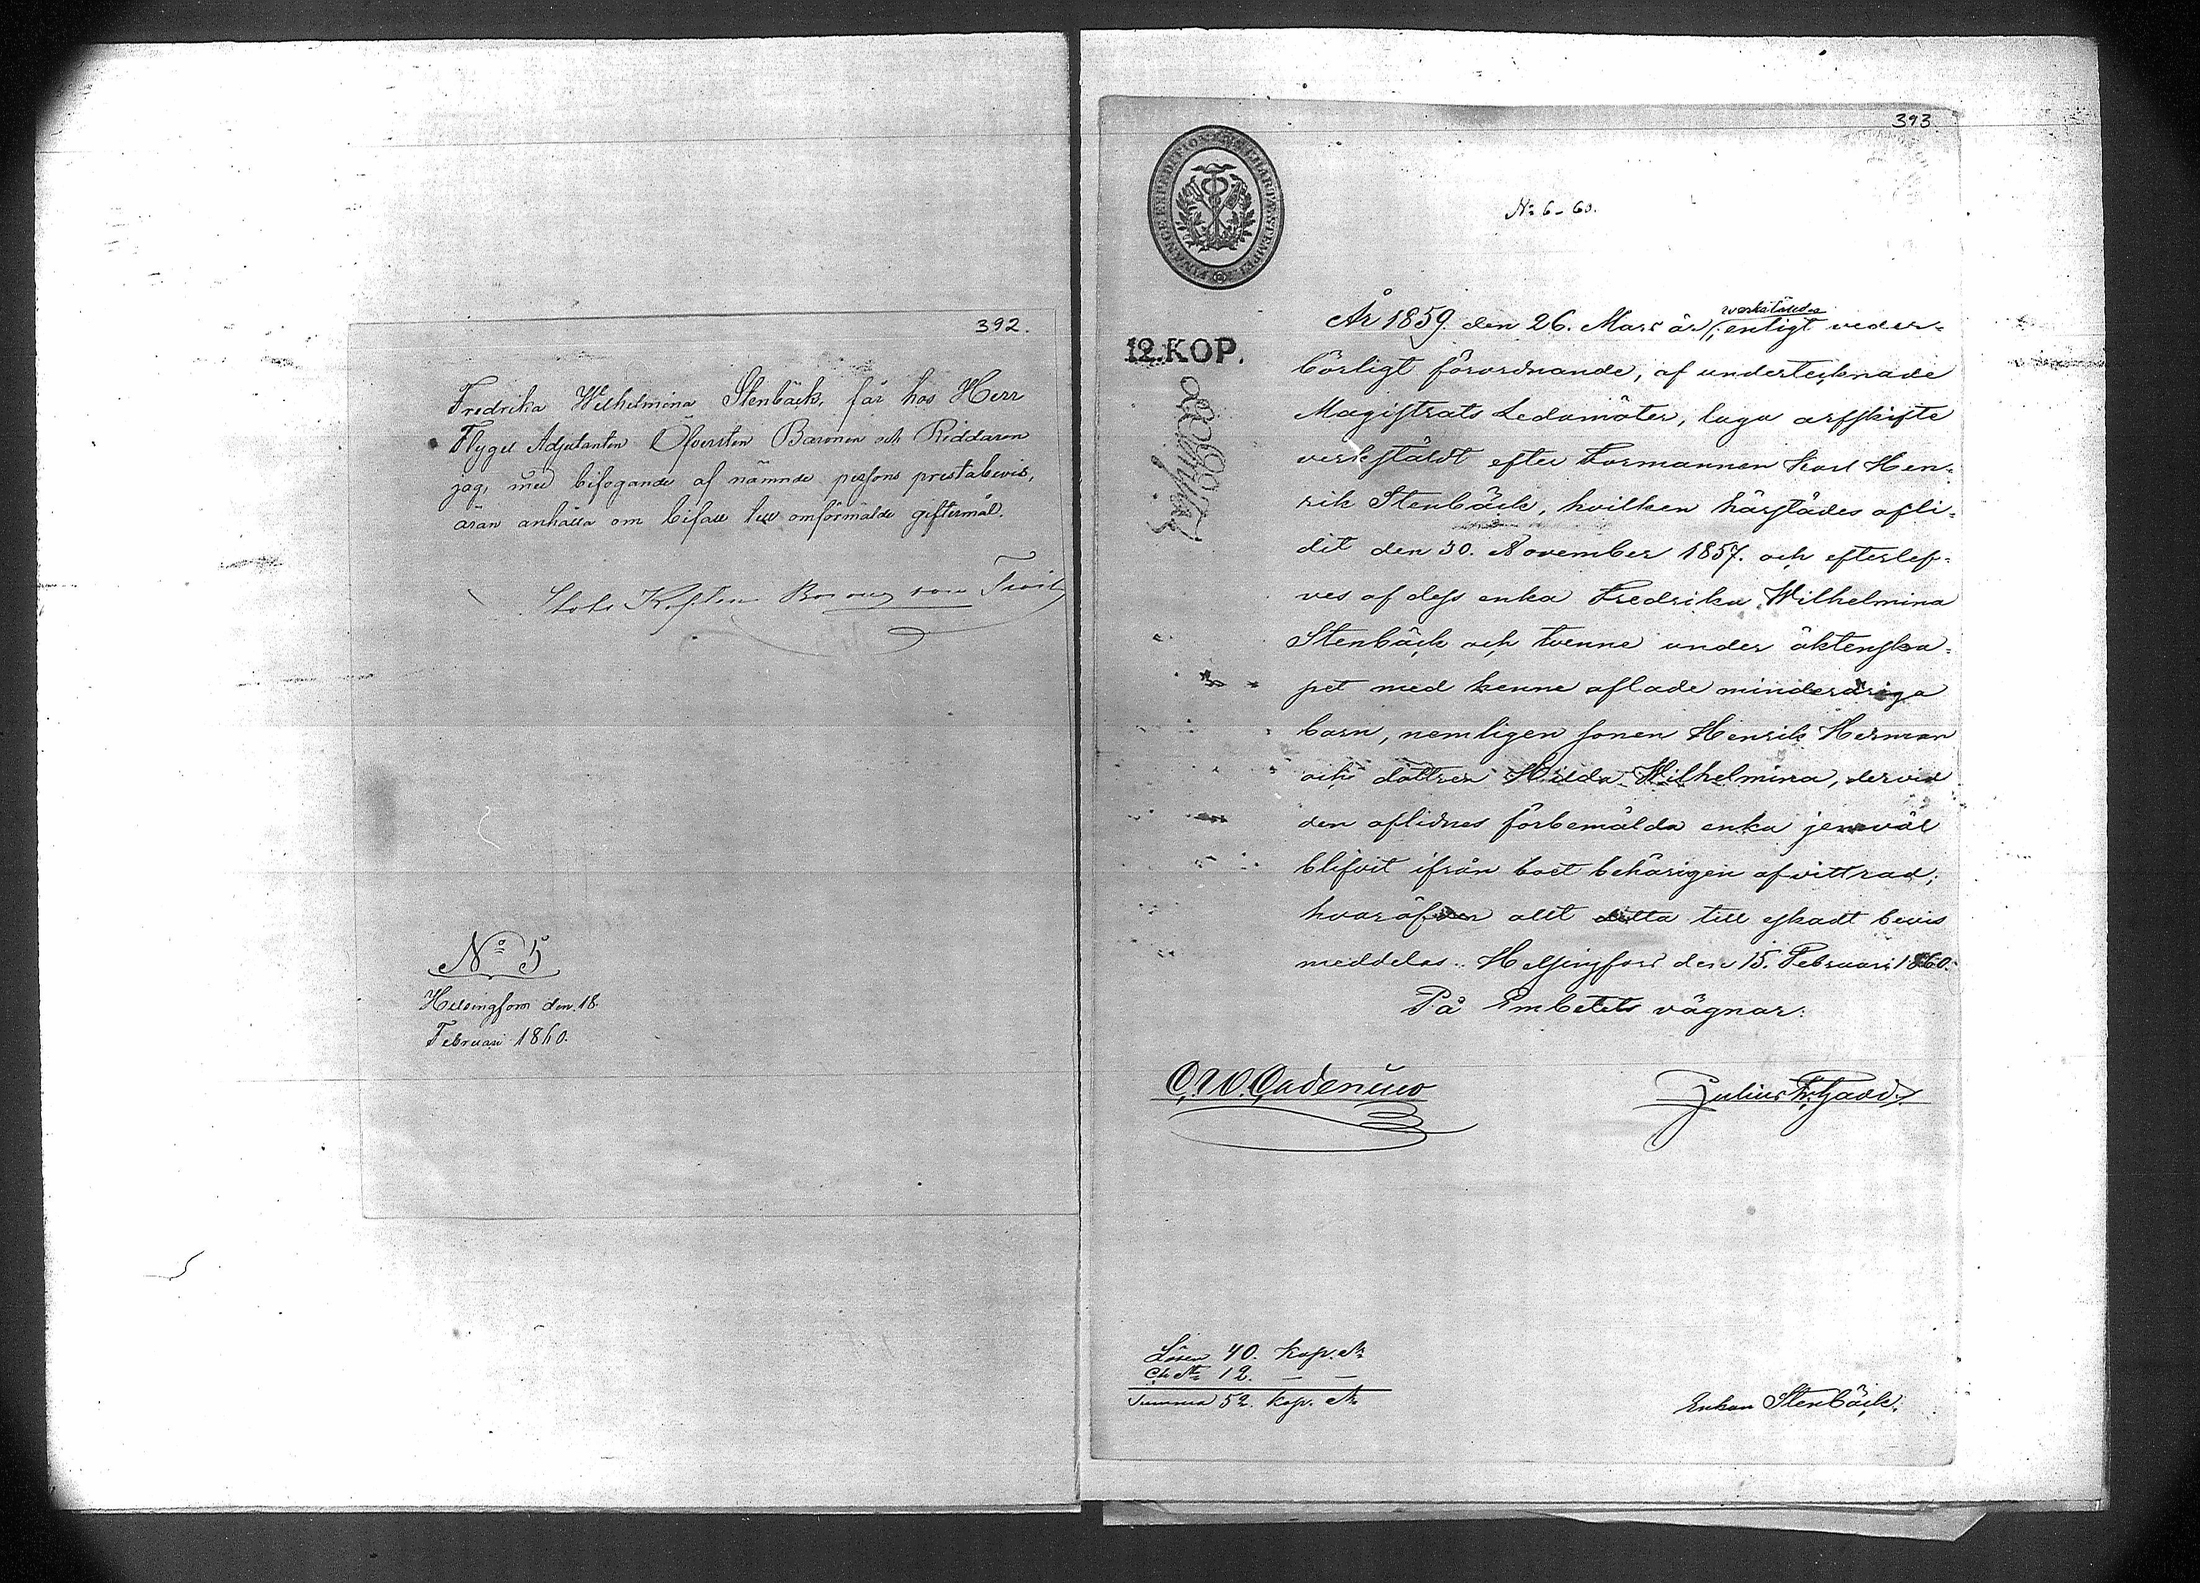 392.
Fredrika Wilhelmina Stenbäck, får hos Herr
Flygel Adjutanten Öfversten Baronen och Riddaren
jag, med bifogande af nämnde persons prestabevis,
äran anhålla om bifall till omförmälde giftermål.
Stabs Kapten
No 5
Helsingfors den 18.
Februari 1860.
393.
No 6-60.
12.KOP.
År 1859 den 26. Mars är, enligt veder-
börligt förordnande, af undertecknade
Magistrats Ledamöter, laga arfskifte
verkstäldt efter Formannen Karl Hen-
rik Stenbäck, hvilken härstädes afli-
dit den 30. November 1857. och efterlef-
ves af dess enka Fredrika Wilhelmina
Stenbäck och tvenne under äktenska-
pet med henne aflade minderåriga
barn, nemligen sonen Henrik Herman
och dottren Hilda Wilhelmina, dervid
den aflidnes förbemälda enka jemväl
blifvit ifrån boet behörigen afvittrad;
hvaröfver allt detta till äskadt bevis
meddelas. Helsingfors den 15. Februari 1860.
På Embetets vägnar:
Julius Fr. Gadd.
Lösen 40. Kop. Sr
Ch. Str 12. — —
Summa 52. Kop. Sr
Enkan Stenbäck.